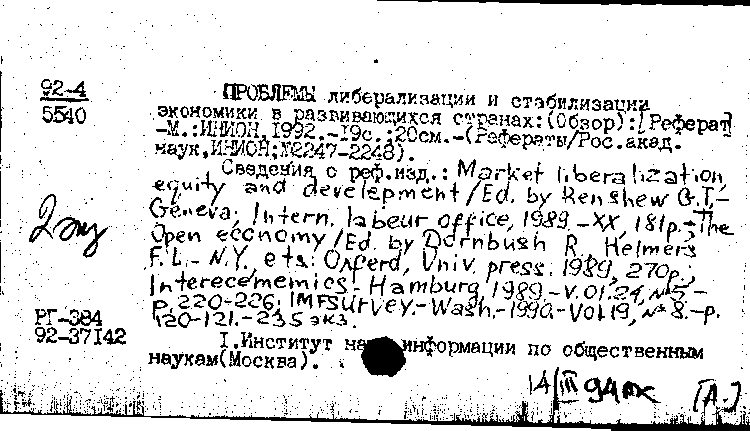 92-4
5540
ПРОБЛЕМЫ либерализации и стабилизации
экономики в развивающихся странах:(Обзор):[Реферат]
-М.:ИНИОН,1992.-19с.;20см.-(Рефераты/Рос.акад.
наук,ИНИОН;№2247-2248).
Сведения о реф.изд.: Market liberalization,
equity and development/Ed. by Renshew G.T.-
Geneva; Intern. labeur office, 1989.-XX, 181p.-The
Open economy/Ed. by Dornbush R., Helmers
F.L.- N.Y. ets: Oxferd, Univ. press. 1989, 270p.;
Interecememics.-Hamburg, 1989.-V.01.24, №5-
p.220-226; IMFSurvey.-Wash.-1990.-Vol.19, №8.-p.
120-121.-235 экз.
2 эку
РГ-384
92-37142
I.Институт на информации по общественным
наукам(Москва).
14/III 94
[А.]